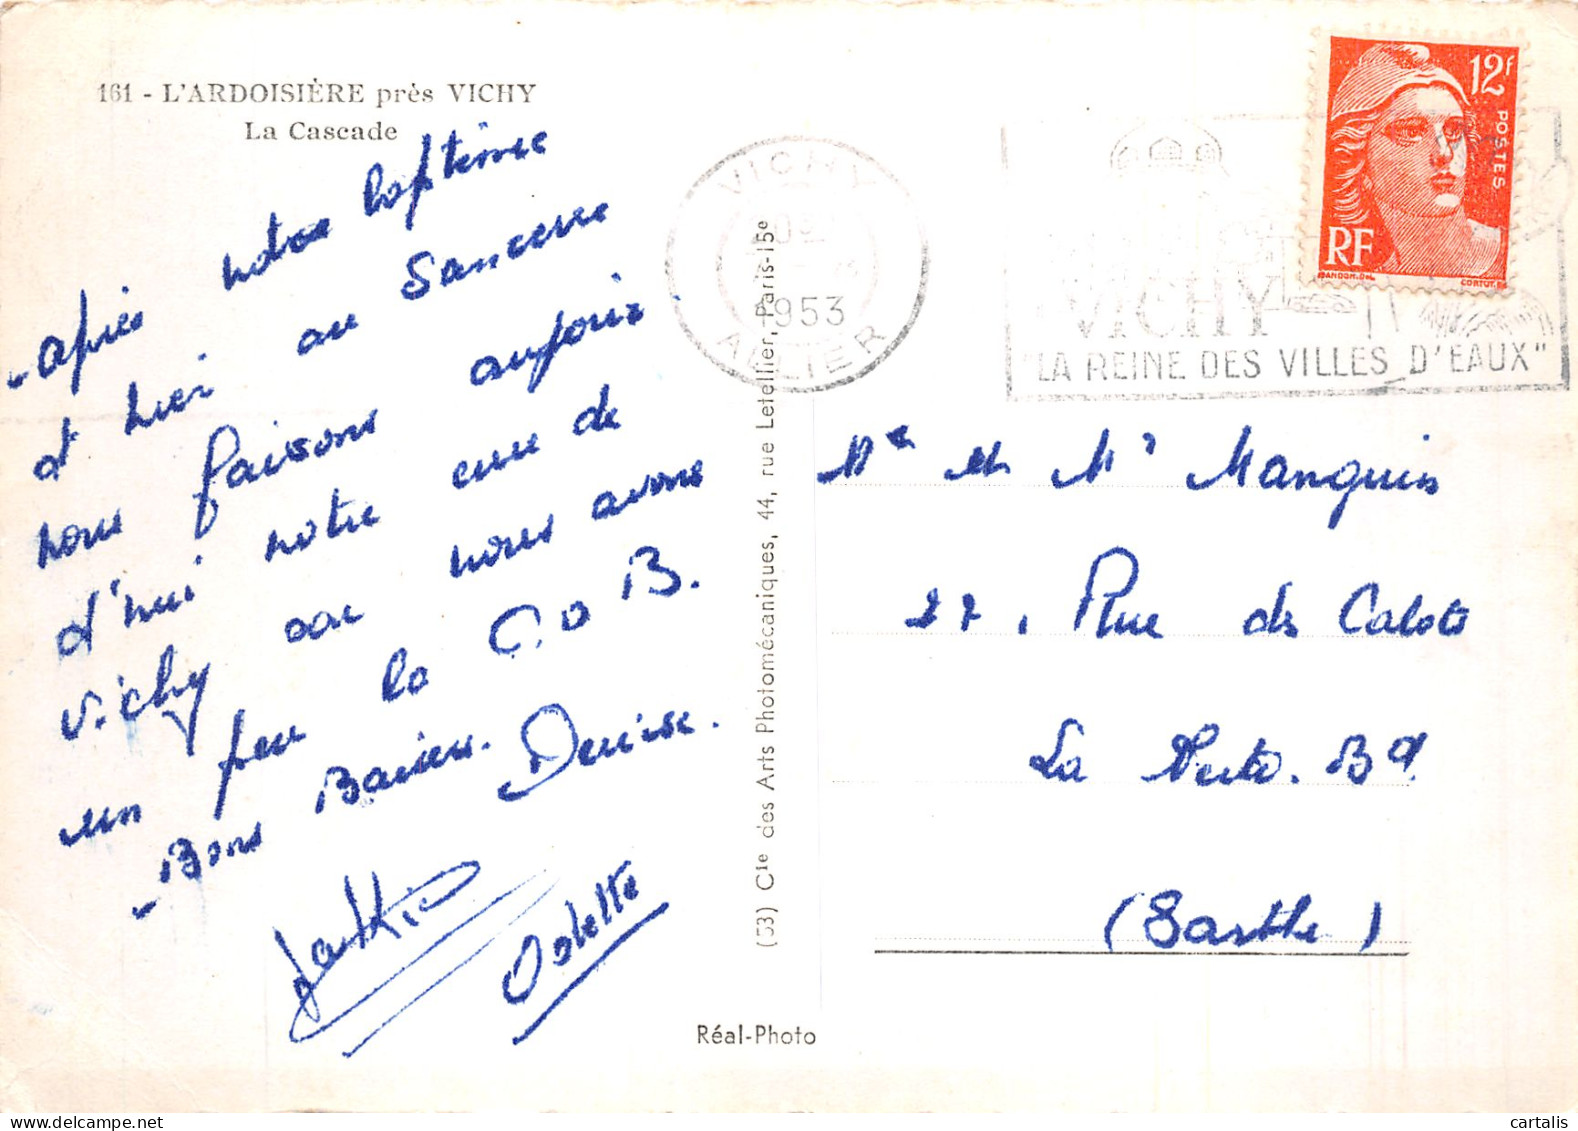 161 - L'ARDOISIÈRE près VICHY
La Cascade
après notre baptême
d'hier au Sancerre
nous faisons aujour
d'hui notre cure de
Vichy car nous avons
un peu la G d B.
Bons Baisers. Denise.
Odette
(53) Cie des Arts Photomécaniques, 44, rue Letellier, Paris-15e
Réal-Photo
VICHY
1953
ALLIER
VICHY
"LA REINE DES VILLES D'EAUX"
12f
POSTES
RF
GANDON.DEL
CORTOT.SC
Me et Mr Manguin
27, Rue des Calots
La Ferté. Bd
(Sarthe)
cartalis